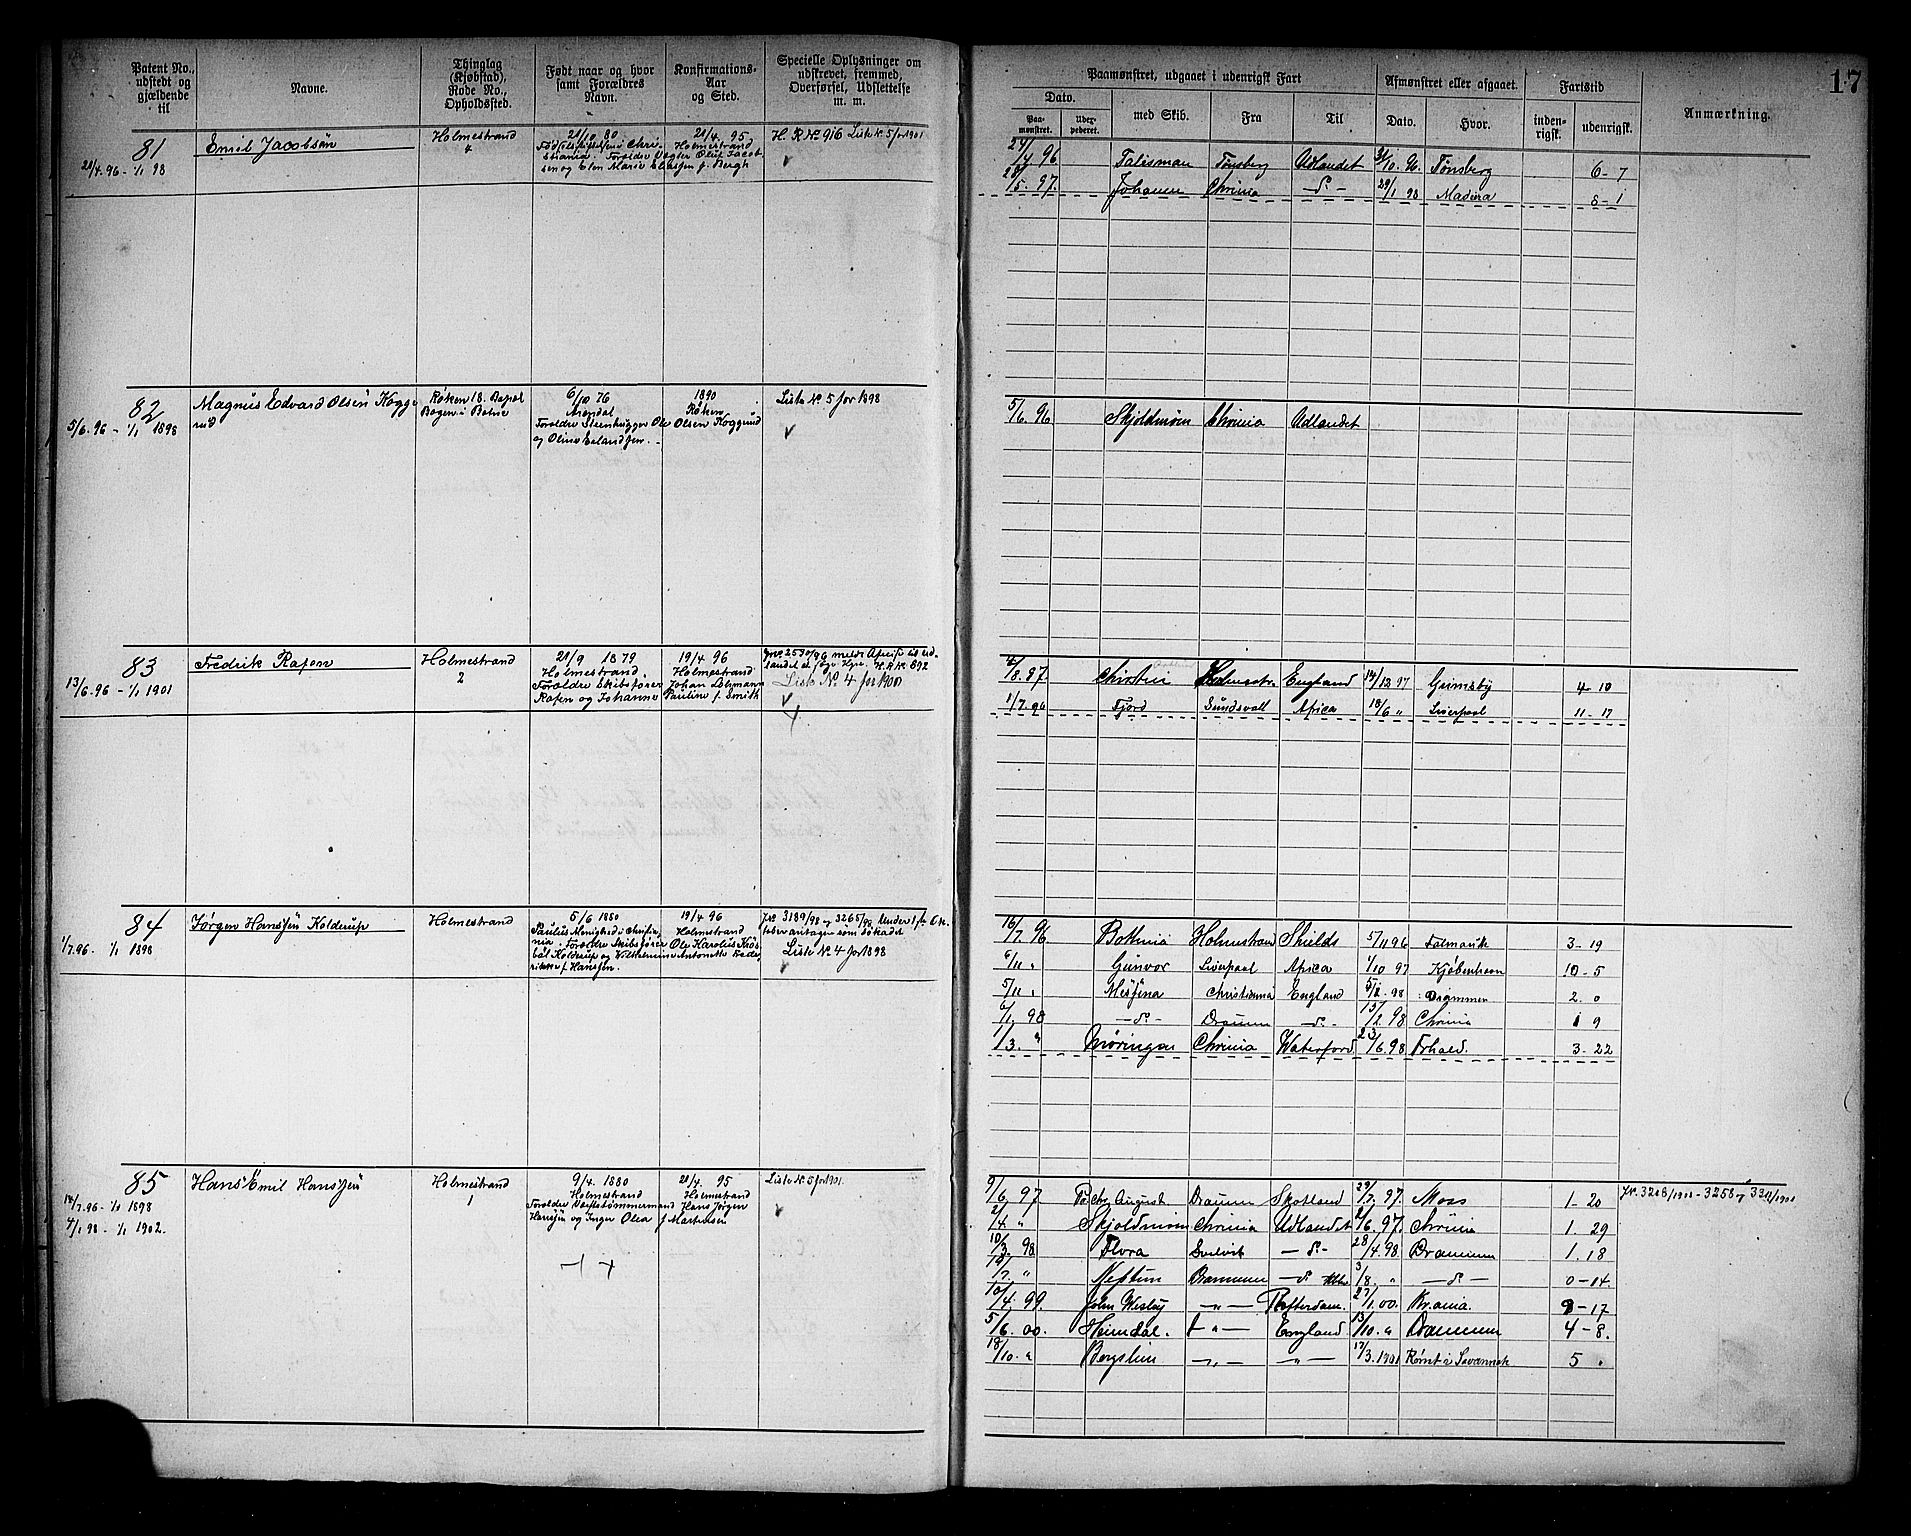 17
Patent No., udstedt og gjældende til
Navne.
Thinglag (Kjøbstad), Rode No., Opholdssted.
Født naar og hvor samt Forældres Navn.
Konfirmations-Aar og Sted.
Specielle Oplysninger om udskrevet, fremmed, Overførsel, Udslettelse m. m.
Paamønstret, udgaaet i udenrigsk Fart
Afmønstret eller afgaaet.
Fartstid
Anmærkning.
Dato.
Paa-mønstret.
med Skib.
Fra
Til
Dato.
Hvor.
inden-rigsk.
udenrigsk.
81
21/4.96 - 1/1 98
Emil Jacobsen
Holmestrand
4
21/10 80
21/4. 95
Holmestrand
H. R. No 916 Liste No. 5 for 1901
96 Talisman Tønsberg Udlandet 31/10. 96. Tønsberg 6-7
28/5. 97. Johanne Chrinia —d°— 29/1 98 Madeira 8-1
82
5/6.96 - 1/1 1898
Magnus Edvard Olsen Koggerud
Røken 18.
Bogen i
6/10 76
Arendal
Forældre Steenhugger Ole Olsen Koggrud
og Oline Erlandsen.
1890
Røken
Liste No 5 for 1898
5/6. 96 Skjoldmøen Chrinia Udlandet
83
13/6.96 - 1/1 1901
Fredrik Rafen
Holmestrand
2
21/9 1879
Holmestrand.
Forældre Skibsfører Johan Lohmann
Rafen og Johanne Pauline f. Smith
19/4 96
Holmestrand
H.R.No. 892
Liste No. 4 for 1900
/8.97 Christine Holmestr. England 14/12 97 Grimsby 4-10
1/7.96 Fjord Sundsvall Africa 18/6 " Liverpool 11-17
84
1/7.96 - 1/1 1898
Jørgen Hanssen Kolderup
Holmestrand
5/6 1880
Paulus Menighed i Christia-
nia. Forældre Skibsfører Ole Karolius
Kolderup og Vilhelmine Antonette Frede-
rikke f. Hanssen.
19/4 96
Holmestrand
Jno 3189/98 og 3265/99
Liste No. 4 for 1898
16/7. 96 Bothnia Holmestrand Shields 5/11 96 3-19
6/11 " Gunvor Liverpool Africa 1/10 97 Kjøbenhavn 10-5
5/11 " Messina Christiania England 98 Drammen 2. 0
6/1. 98 —d°— Drammen —d°— 13/2. 98 Chrinia 9
1/3. " Chrinia Waterford 23/6 98 Frhald. 3-22
85
14/7.96 - 1/1 1898
7/1 98 - 1/1 1902.
Hans Emil Hanssen
Holmestrand
1
9/4. 1880
Holmestrand
Forældre Værftstømmermand Hans Jørgen
Hanssen og Inger Olea f. Martinsen
21/4. 95
Holmestrand
Liste No 5 for 1901.
9/6. 97 August Drammen Skotland 29/7. 97. Moss 1-20
2/4 " Skjoldmøen Chrinia Udlandet /6. 97. Chrinia 1. 29
10/3. 98 Flora Svelvik —d°— 28/4. 98 Drammen 1. 18
14/7. " Neptun Drammen —d° 3/8. " —d°— 0-14
10/4. 99. John Wesley —"— Rotterdam. 27/1. 00. Krania. 9-17
5/6. 00. Heimdal. —"— England. 13/10. " Drammen 4-8.
18/10. " Bergslien —"— —"— 17/3. 1901 Rømt i Savannah 5 "